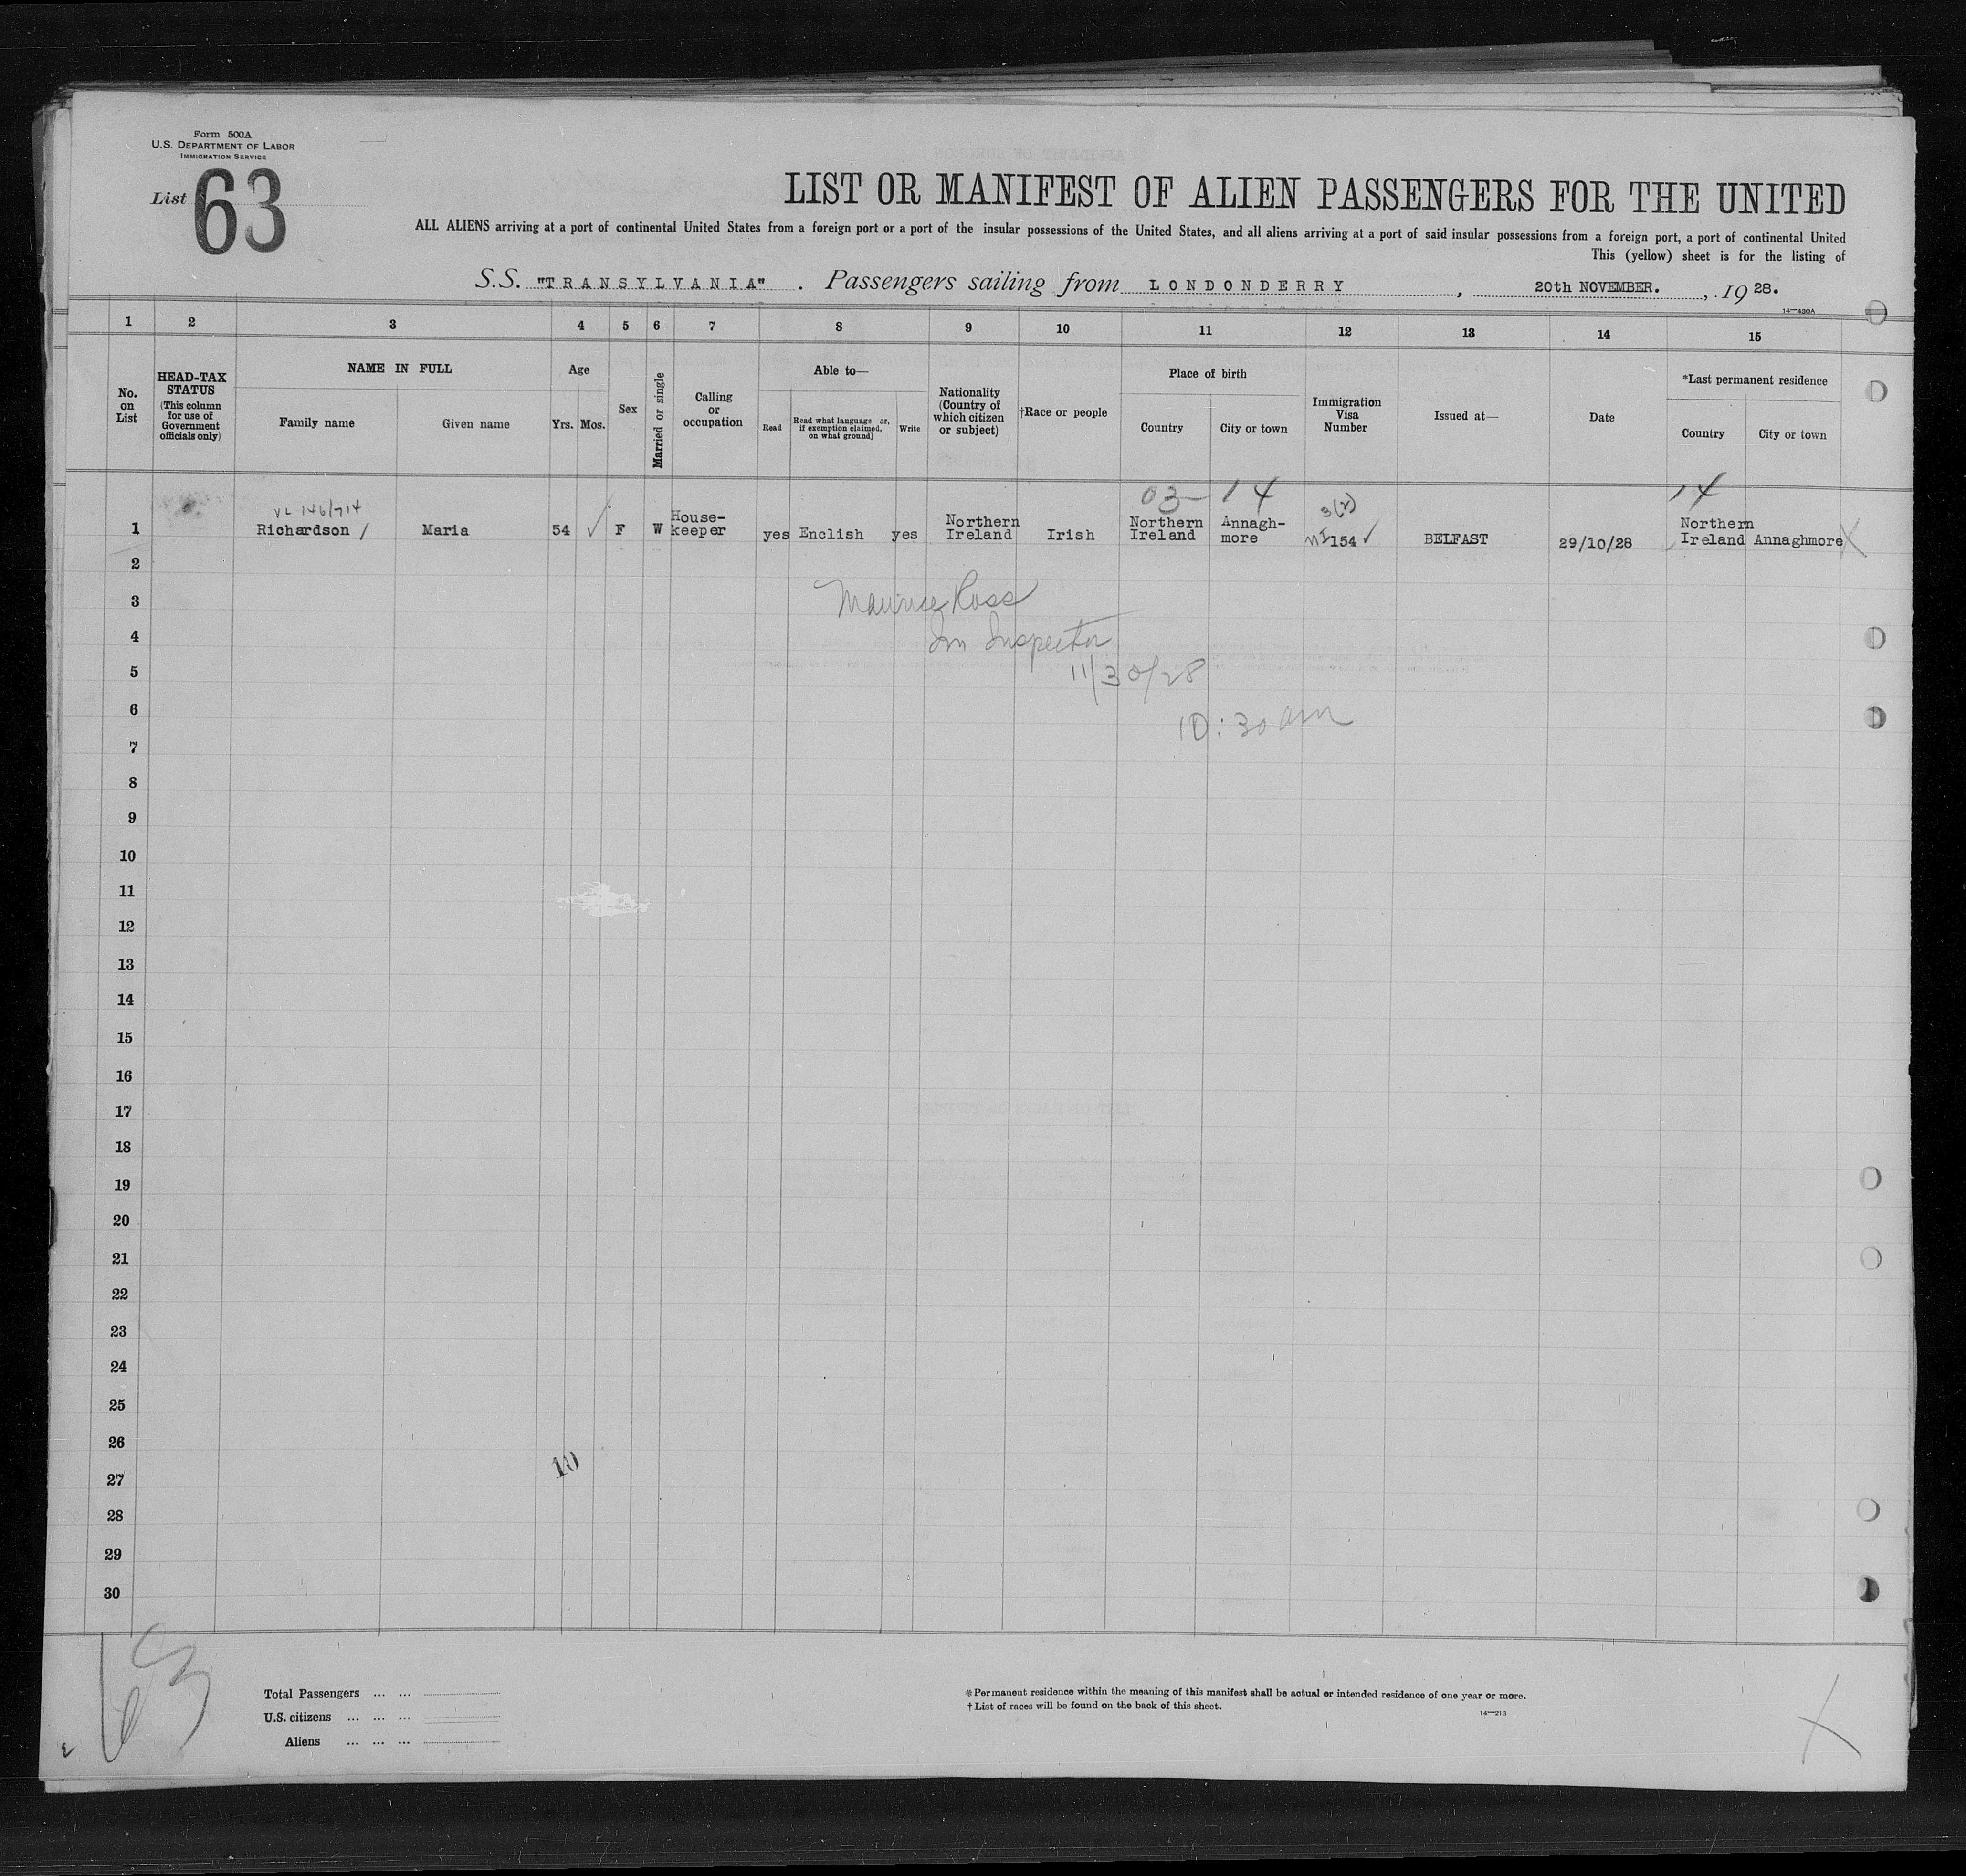 Form 500A
U.S. DEPARTMENT OF LABOR
IMMIGRATION SERVICE
List 63
LIST OR MANIFEST OF ALIEN PASSENGERS FOR THE UNITED
ALL ALIENS arriving at a port of continental United States from a foreign port or a port of the insular possessions of the United States, and all aliens arriving at a port of said insular possessions from a foreign port, a port of continental United
This (yellow) sheet is for the listing of
S.S. "TRANSYLVANIA" . Passengers sailing from LONDONDERRY , 20th NOVEMBER. , 19 28.
14—430A
1 2 3 4 5 6 7 8 9 10 11 12 13 14 15
No. on List
HEAD-TAX STATUS
(This column for use of Government officials only)
NAME IN FULL
Family name
Given name
Age
Yrs. Mos.
Sex
Married or single
Calling or occupation
Able to—
Read
Read what language or, if exemption claimed, on what ground]
Write
Nationality (Country of which citizen or subject)
†Race or people
Place of birth
Country
City or town
Immigration Visa Number
Issued at—
Date
*Last permanent residence
Country
City or town
03- 14 14
VL 146/714
1 Richardson / Maria 54 ✓ F W House-keeper yes Enclish yes Northern Ireland Irish Northern Ireland Annagh-more NI 154 ✓ BELFAST 29/10/28 Northern Ireland Annaghmore X
2
3 Maurice Ross
4 Im Inspector
5 11/30/28
6 10:30 am
7
8
9
10
11
12
13
14
15
16
17
18
19
20
21
22
23
24
25
26
10
27
28
29
30
63
Total Passengers ... ...
U.S. citizens ... ... ...
Aliens ... ... ...
*Permanent residence within the meaning of this manifest shall be actual or intended residence of one year or more.
†List of races will be found on the back of this sheet.
14—213
X